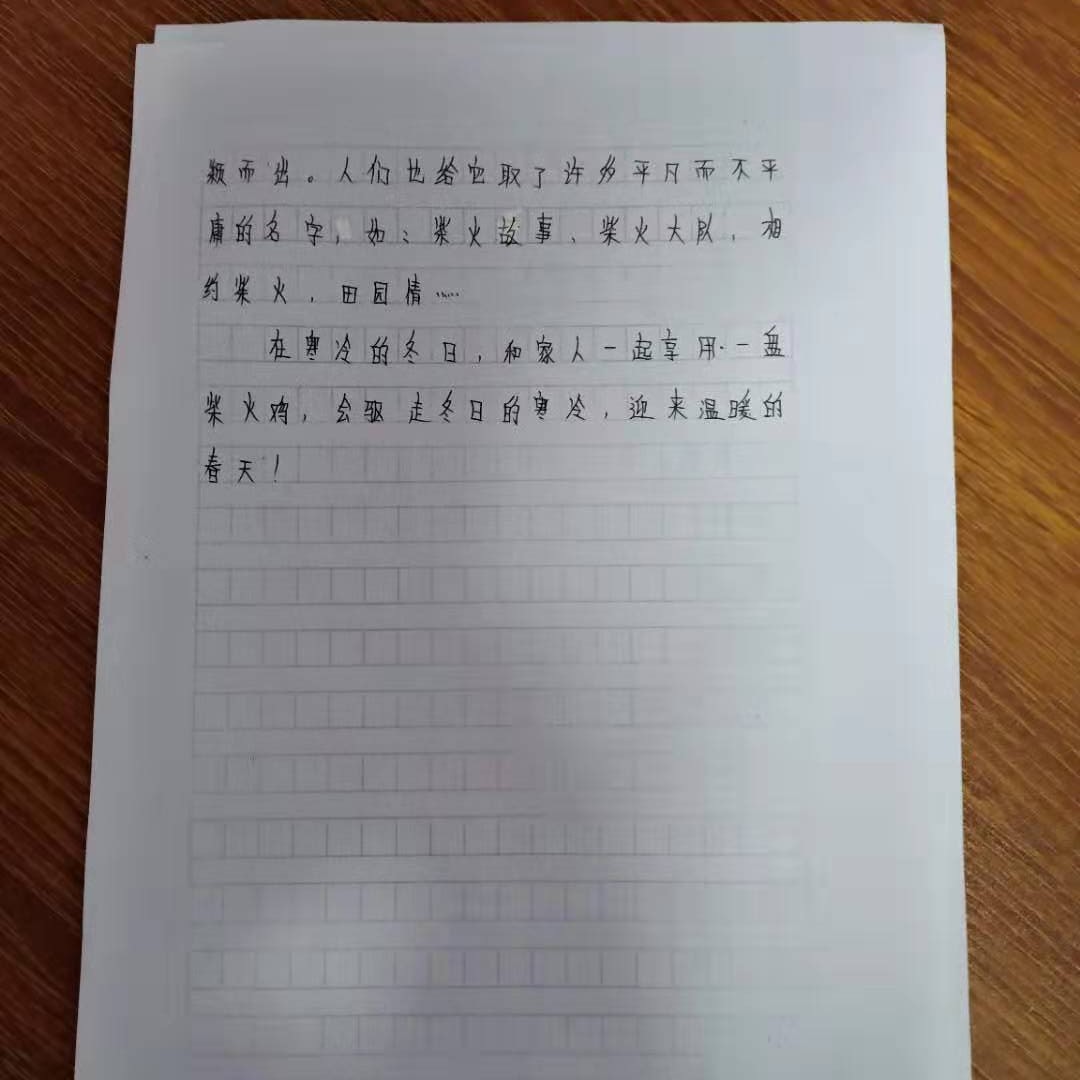 颖而出。人们也给它取了许多平凡而不平
庸的名字，如：柴火故事、柴火大队，相
约柴火，田园情……
在寒冷的冬日，和家人一起享用一盘
柴火鸡，会驱走冬日的寒冷，迎来温暖的
春天！